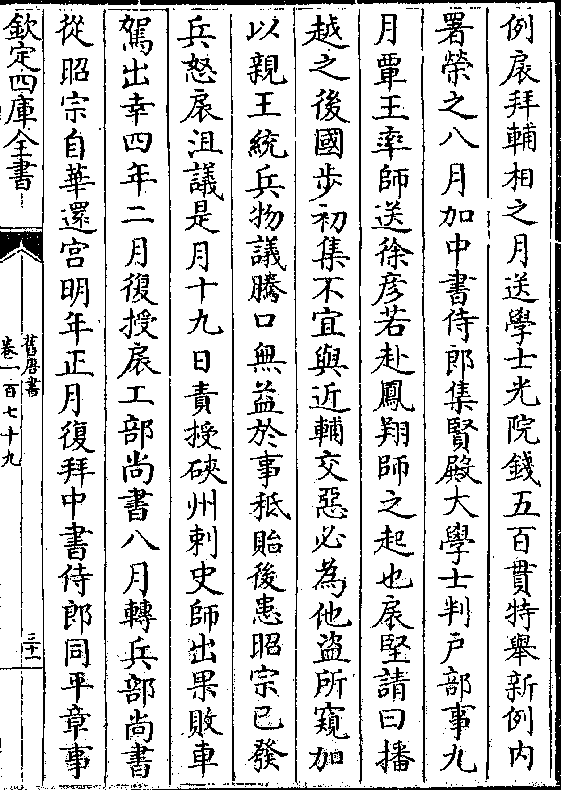 例扆拜輔相之月送學士光院錢五百貫特舉新例内
署榮之八月加中書侍郎集賢殿大學士判户部事九
月覃王率師送徐彦若赴鳳翔師之起也扆堅請曰播
越之後國步初集不宜與近輔交惡必為他盗所窺加
以親王統兵物議騰口無益於事秪貽後患昭宗已發
兵怒扆沮議是月十九日責授硤州刺史師出果敗車
駕出幸四年二月復授扆工部尚書八月轉兵部尚書
從昭宗自華還宫明年正月復拜中書侍郎同平章事
欽定四庫全書
舊唐書
卷一百七十九
三十一